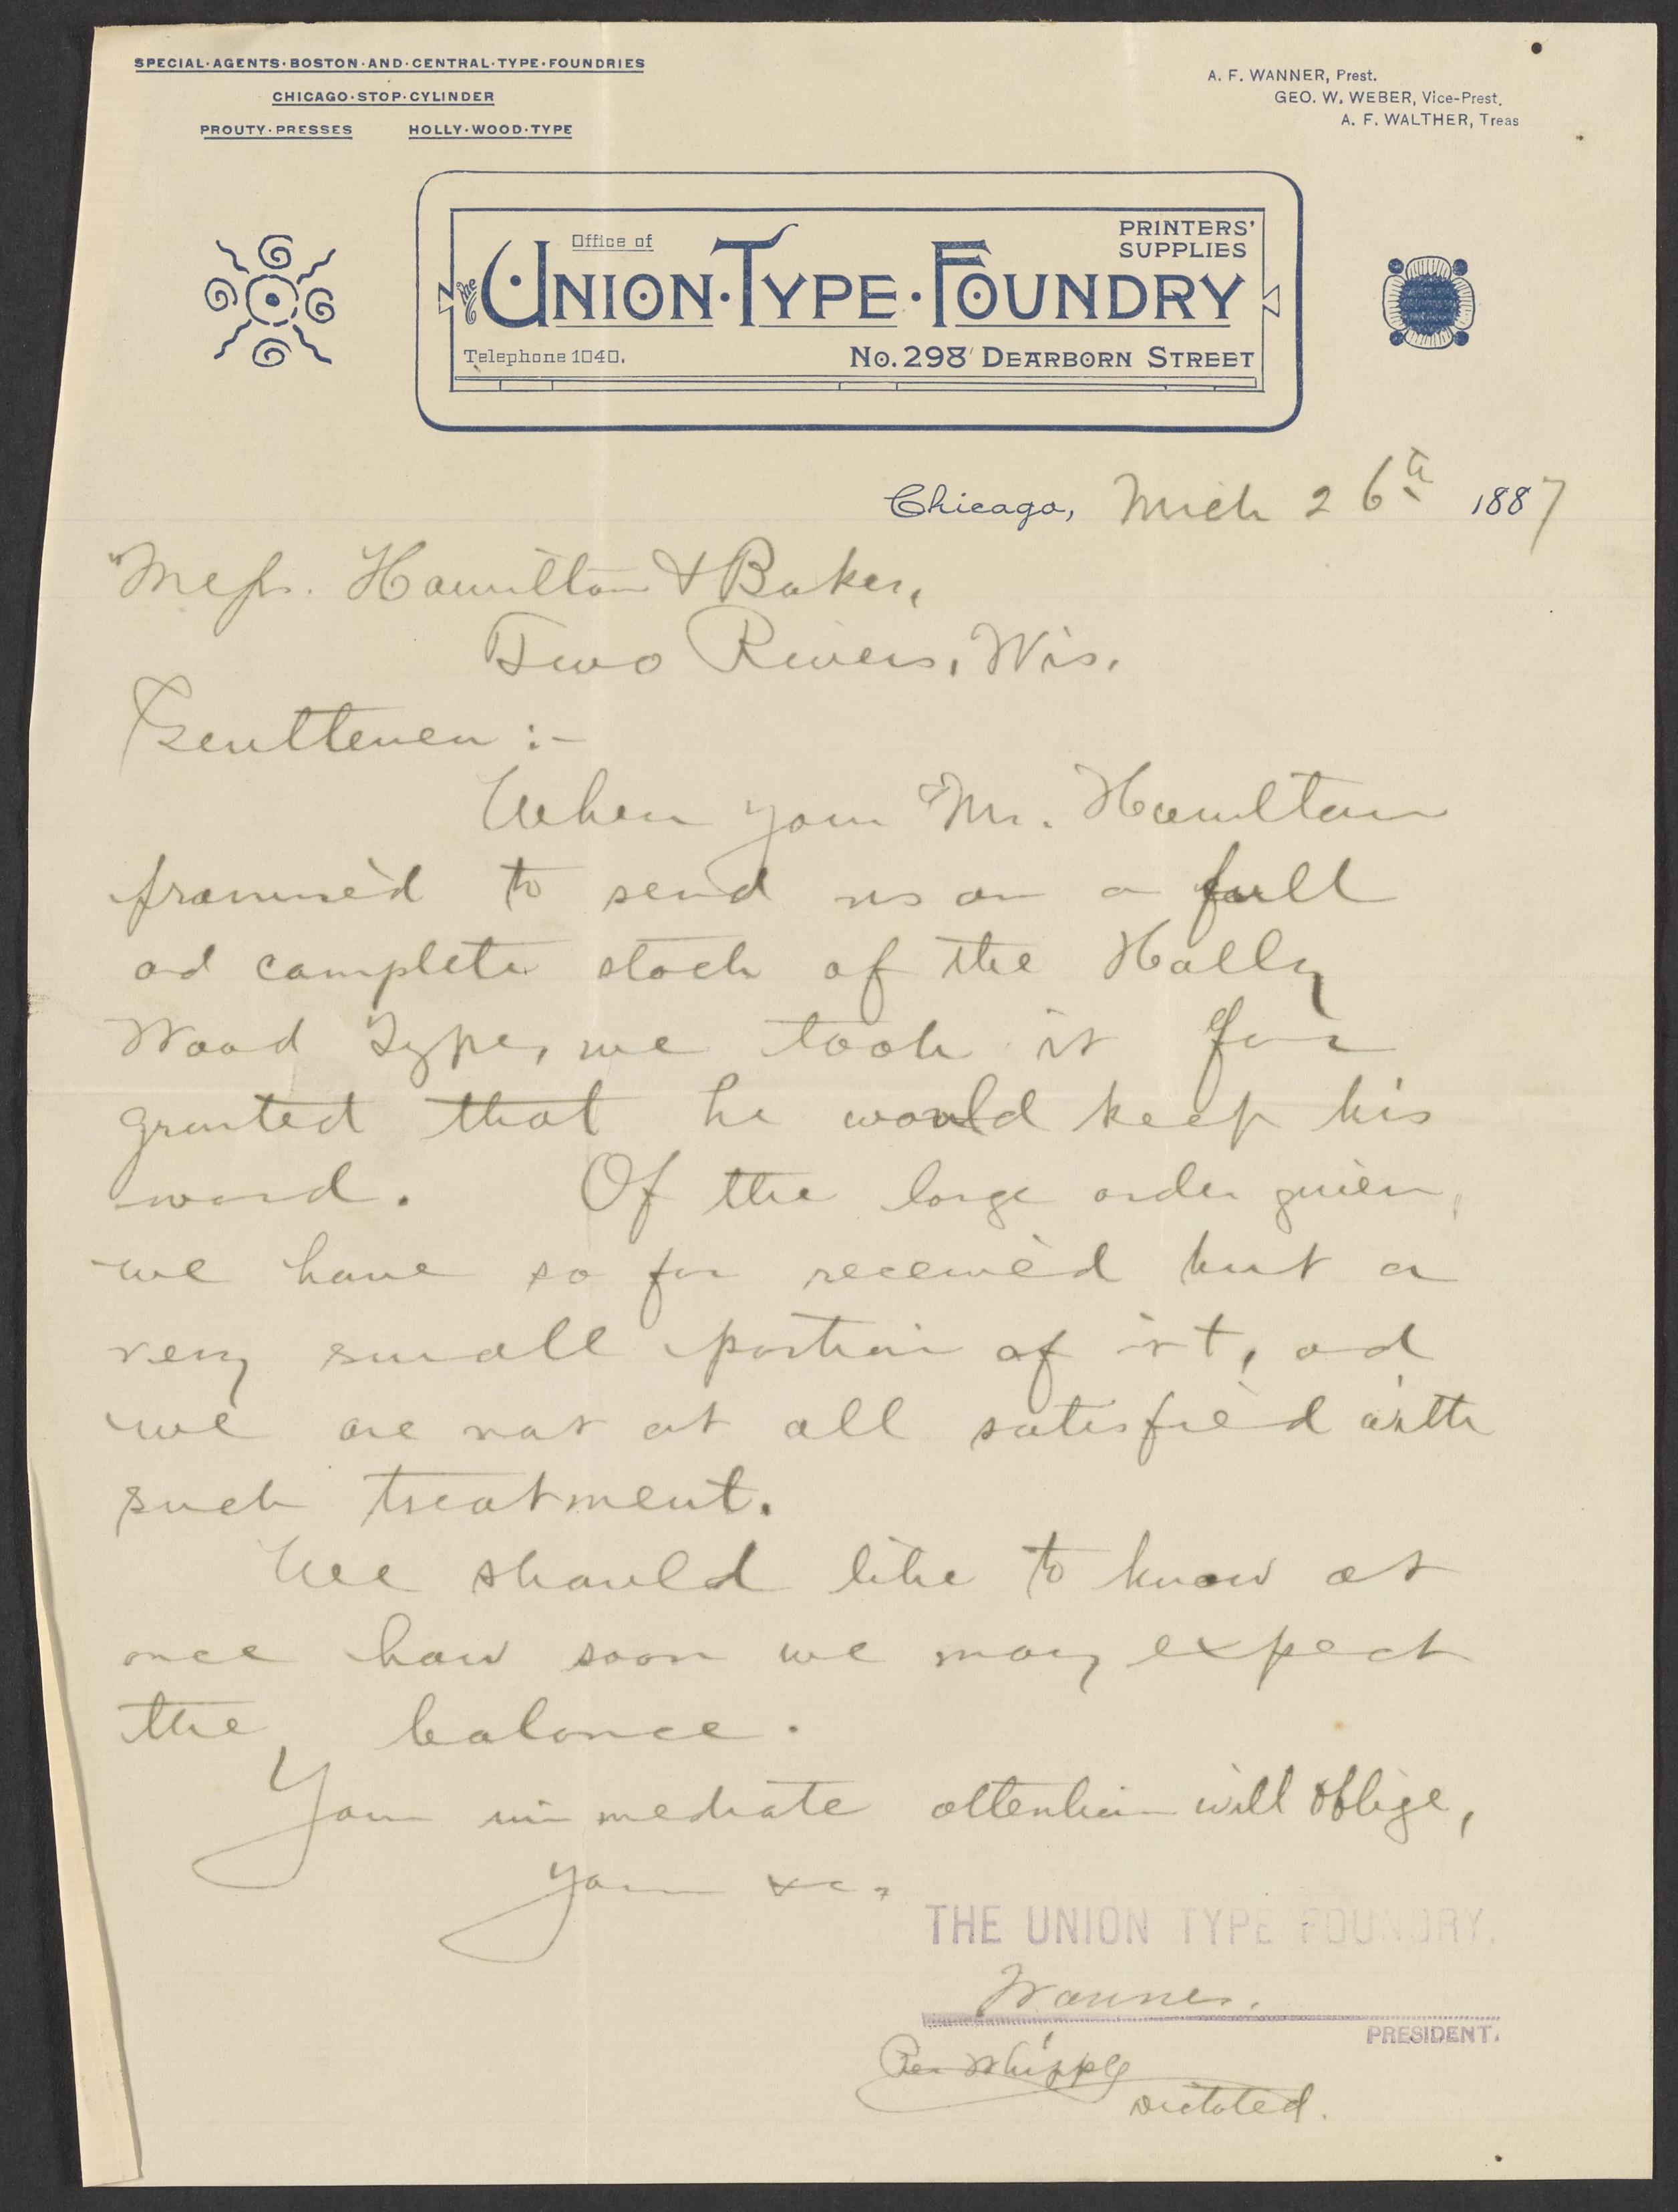 SPECIAL·AGENTS·BOSTON·AND·CENTRAL·TYPE·FOUNDRIES
CHICAGO·STOP·CYLINDER
PROUTY·PRESSES HOLLY·WOOD·TYPE
A. F. WANNER, Prest.
GEO. W. WEBER, Vice-Prest.
A. F. WALTHER, Treas
Office of
PRINTERS'
SUPPLIES
The UNION·TYPE·FOUNDRY
Telephone 1040. No. 298 DEARBORN STREET
Chicago, Mch 26th 1887
Messrs. Hamilton & Baker,
Two Rivers, Wis.
Gentlemen :-
When your Mr. Hamilton
promised to send us on a full
and complete stock of the Holly
Wood Type, we took it for
granted that he would keep his
word. Of the large order given,
we have so far received but a
very small portion of it, and
we are not at all satisfied with
such treatment.
We should like to know at
once how soon we may expect
the balance.
Your immediate attention will oblige,
Yours &c,
THE UNION TYPE FOUNDRY.
Wanner.
PRESIDENT.
Per Whipple
Dictated.